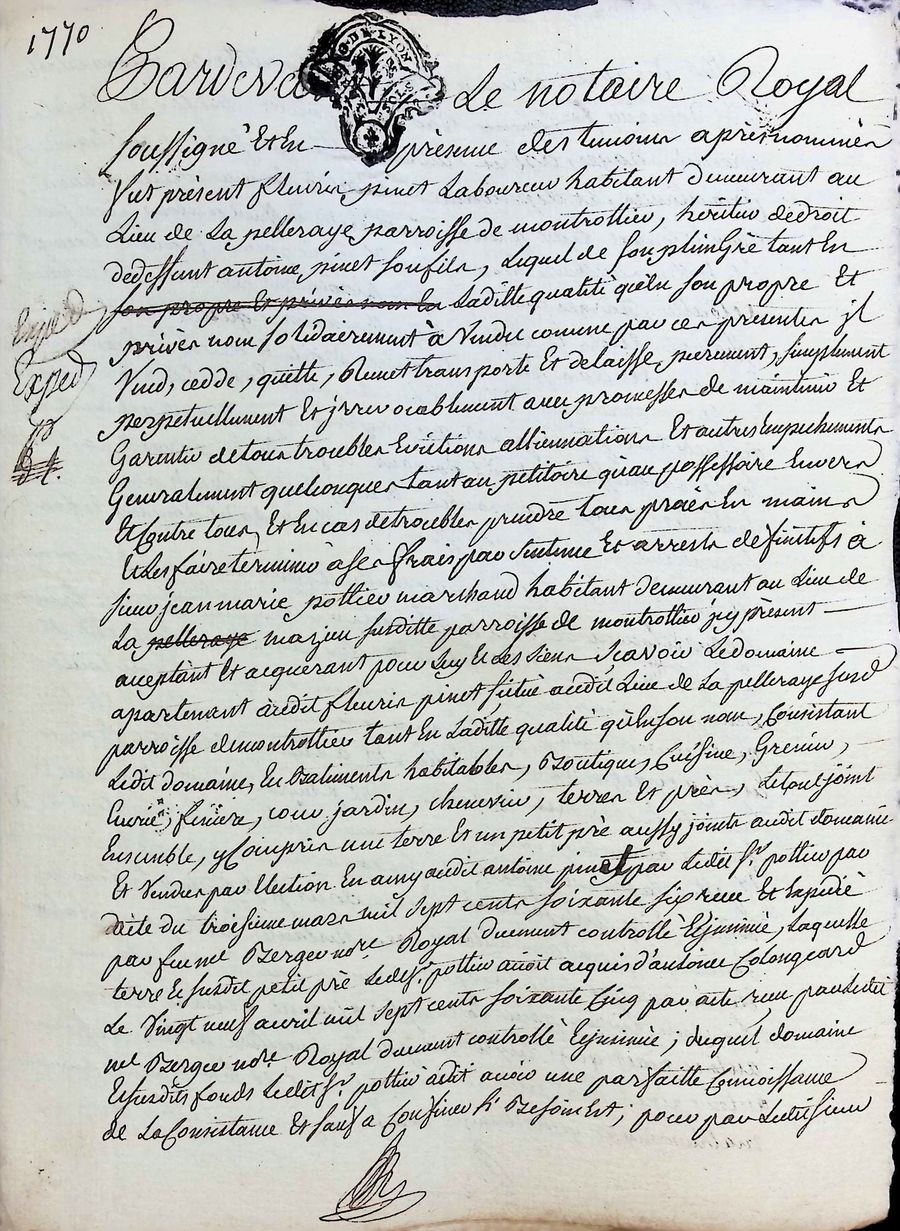 1770
Pardevant Le notaire Royal
G. DE LYON
SOLS
soussigné et en présence des temoins aprés nommés
Fut présent fleurie pinet Laboureur habitant demeurant au
Lieu de La pelleraye parroisse de montrottier, heritier de droit
de deffunt antoine pinet son fils, Lequel de son plein Gré tant En
son propre Et privés nom En Laditte qualité qu'En son propre Et
privés nom solidairement à vendu comme par ces presentes il
Vend, cedde, quitte, Remet transporte Et delaisse purement, simplement
perpetuellement Et irrevocablement avec promesses de maintenir Et
Garentir de tous troubles Evictions alliennations Et autres Empechements
Generalement quelconques tant au petitoire qu'au possessoire Envers
Et Contre tous, Et En cas de troubles prendre tous procés En mains
Et Les faire terminer à ses frais par sentence Et arrests definitifs à
sieur jean marie pottier marchand habitant demeurant au Lieu de
La pelleraye mazieu susditte parroisse de montrottier icy présent
acceptant Et acquerant pour Luy Et Les siens Scavoir Le domaine
apartenant àudit fleurie pinet situé audit Lieu de La pelleraye susd
parroisse demontrottier tant En Laditte qualité qu'En son nom, Consistant
Ledit domaine, En Batiments habitables, Boutique, Cuisine, Grenier,
Ecurie, feniere, cour jardin, chenevier, terres Et prés, Le tout joint
Ensemble, y Compris une terre Et un petit pré aussy joints audit domaine
Et Vendus par Election En amy audit antoine pinet par Ledit sr. pottier par
acte du troisieme mars mil sept cents soixante six reçu Et Expedié
par feu me Berger nore. Royal duement controllé Et insinué, Laquelle
terre Et susdit petit pré Ledit sr. pottier avoit acquis d'antoine Colongeard
Le Vingt neuf avril mil sept cents soixante Cinq par acte reçu par Ledit
me Berger nore. Royal duement controllé Et insinué; duquel domaine
Et susdits fonds Ledit sr. pottier à dit avoir une parfaitte Connoissance
de La Consistance Et sauf a Confiner si Besoin Est; pour par Ledit sieur
Exped
Exped